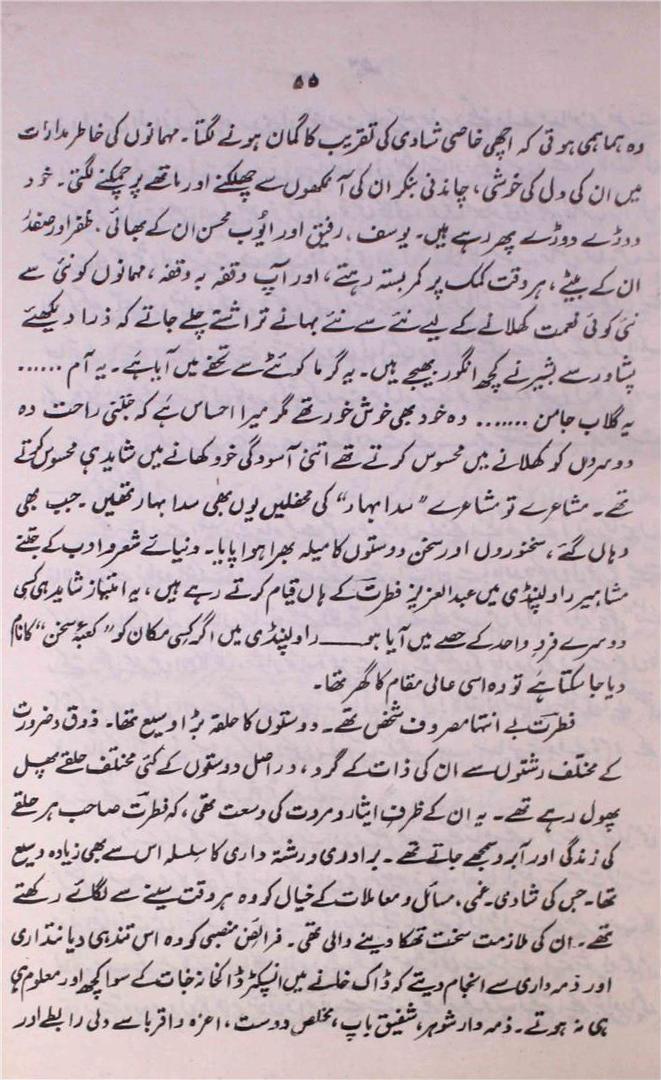 ۵۵
وہ ہماہمی ہوتی کہ اچھی خاصی شادی کی تقریب کا گمان ہونے لگتا۔ مہمانوں کی خاطر مدارات
میں ان کی دل کی خوشی، چاندنی بنکر ان کی آنکھوں سے چھلکنے اور ماتھے پر چمکنے لگتی۔ خود
دوڑے دوڑے پھر رہے ہیں۔ یوسف، رفیق اور ایوب محسن ان کے بھائی۔ ظفر اور صفدر
ان کے بیٹے، ہر وقت کمک پر کمر بستہ رہتے، اور آپ وقفہ بہ وقفہ، مہمانوں کو نئی سے
نئی کوئی نعمت کھلانے کے لیے نئے سے نئے بہانے تراشتے چلے جاتے کہ ذرا دیکھئے
پشاور سے بشیر نے کچھ انگور بھیجے ہیں۔ یہ گرما کوئٹے سے تحفے میں آیا ہے۔ یہ آم ......
یہ گلاب جامن ....... وہ خود بھی خوش خور تھے مگر میرا احساس ہے کہ جتنی راحت وہ
دوسروں کو کھلانے میں محسوس کرتے تھے اتنی آسودگی خود کھانے میں شاید ہی محسوس کرتے
تھے۔ مشاعرے تو مشاعرے ”سدا بہار“ کی محفلیں یوں بھی سدا بہار تھیں۔ جب بھی
وہاں گئے، سخنوروں اور سخن دوستوں کا میلہ بھرا ہوا پایا۔ دنیائے شعر و ادب کے جتنے
مشاہیر راولپنڈی میں عبدالعزیز فطرتؔ کے ہاں قیام کرتے رہے ہیں، یہ امتیاز شاید ہی کسی
دوسرے فردِ واحد کے حصے میں آیا ہو ــــــ راولپنڈی میں اگر کسی مکان کو ”کعبۂ سخن“ کا نام
دیا جا سکتا ہے تو وہ اسی عالی مقام کا گھر تھا۔
فطرتؔ بے انتہا مصروف شخص تھے۔ دوستوں کا حلقہ بڑا وسیع تھا۔ ذوق و ضرورت
کے مختلف رشتوں سے ان کی ذات کے گرد، دراصل دوستوں کے کئی مختلف حلقے پھل
پھول رہے تھے۔ یہ ان کے ظرفِ ایثار و مروت کی وسعت تھی، کہ فطرتؔ صاحب ہر حلقے
کی زندگی اور آبرو سمجھے جاتے تھے۔ برادری و رشتہ داری کا سلسلہ اس سے بھی زیادہ وسیع
تھا۔ جس کی شادی۔ غمی، مسائل و معاملات کے خیال کو وہ ہر وقت سینے سے لگائے رکھتے
تھے۔ ان کی ملازمت سخت تھکا دینے والی تھی۔ فرائض منصبی کو وہ اس تندہی دیانتداری
اور ذمہ داری سے انجام دیتے کہ ڈاک خانے میں انسپکٹر ڈاکخانہ جات کے سوا کچھ اور معلوم ہی
ہی نہ ہوتے۔ ذمہ دار شوہر، شفیق باپ، مخلص دوست، اعزہ و اقربا سے دلی رابطے اور